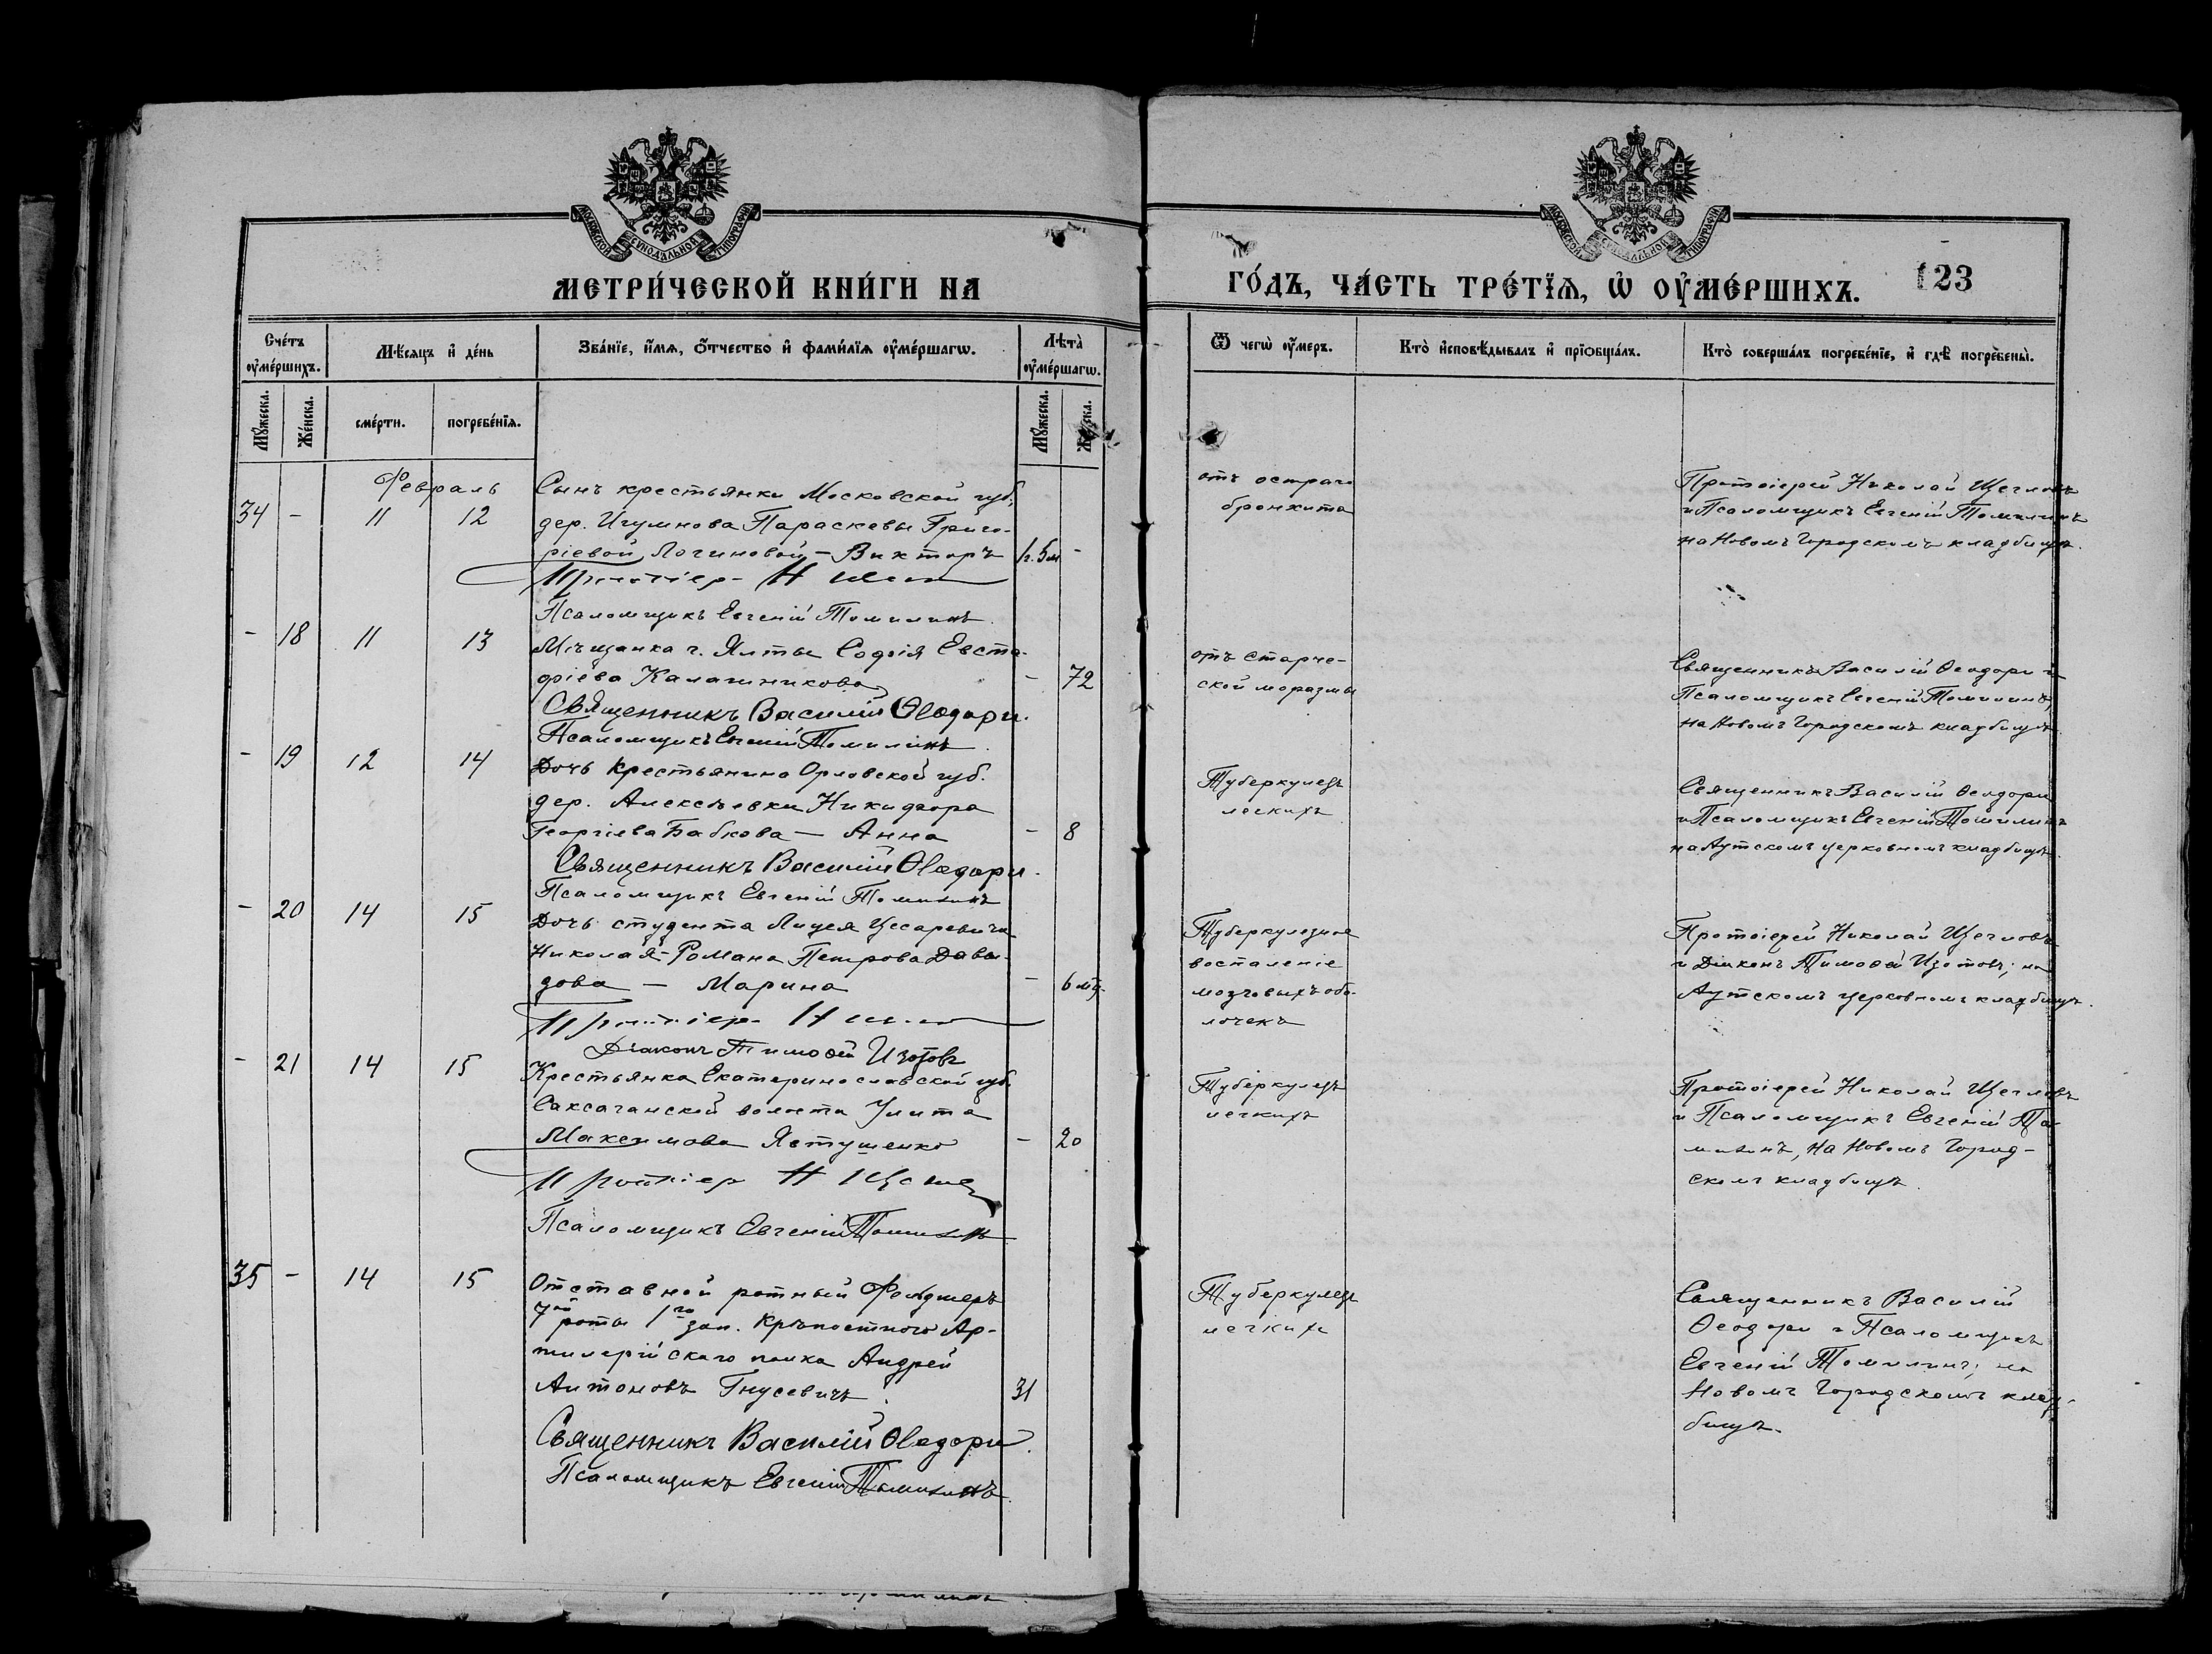 МОСКОВСКОЙ СѴНОДАЛЬНОЙ ТИПОГРАФІИ
МОСКОВСКОЙ СѴНОДАЛЬНОЙ ТИПОГРАФІИ
МЕТРИ́ЧЕСКОЙ КНИ́ГИ НА
ГО́ДЪ, ЧА́СТЬ ТРЕ́ТЇѦ, Ѡ҆ ОУ҆МЕ́РШИХЪ.
123
Сче́тъ оу҆ме́ршихъ.
Мѣ́сѧцъ и҆ де́нь
Зва́нїе, и҆́мѧ, ѻ҆́тчество и҆ фами́лїѧ оу҆ме́ршагѡ.
Лѣта̀ оу҆ме́ршагѡ.
Ѿ чегѡ̀ оу҆́меръ.
Кто̀ и҆сповѣ́дывалъ и҆ прїѻбща́лъ.
Кто̀ соверша́лъ погребе́нїе, и҆ гдѣ̀ погребены̀.
Мꙋ́жеска.
Же́нска.
сме́рти.
погребе́нїѧ.
Мꙋ́жеска.
Же́нска.
Февраль
34 - 11 12
Сынъ крестьянки Московской губ;
дер. Игумнова Параскевы Григо-
ріевой Логиновой - Викторъ 1г. 5м -
Протоіер. Н
Псаломщикъ Евгеній Томилинъ.
отъ остраго
бронхита
Протоіерей Николай Щегловъ
и Псаломщикъ Евгеній Томилинъ
на Новомъ Городскомъ кладбищѣ.
- 18 11 13
Мѣщанка г. Ялты Софія Евста-
фіева Калашникова - 72
Священникъ Василій Ѳеодори.
Псаломщикъ Евгеній Томилинъ.
отъ старче-
ской маразмы
Священникъ Василій Ѳеодори и
Псаломщикъ Евгеній Томилинъ,
на Новомъ Городскомъ кладбищѣ
- 19 12 14
Дочь крестьянина Орловской губ.
дер. Алексѣевки Никифора
Георгіева Бабкова - Анна - 8
Священникъ Василій Ѳеодори.
Псаломщикъ Евгеній Томилинъ
Туберкулезъ
легкихъ
Священникъ Василій Ѳеодори
и Псаломщикъ Евгеній Томилинъ
на Аутскомъ церковномъ кладбищѣ.
- 20 14 15
Дочь студента Лицея Цесаревича
Николая - Романа Петрова Давы-
дова - Марина - 6 мѣ.
Протоіер. Н
Діаконъ Тимоѳей Изотовъ
Туберкулезное
воспаленіе
мозговыхъ обо-
лочекъ
Протоіерей Николай Щегловъ
и Діаконъ Тимоѳей Изотовъ; на
Аутскомъ церковномъ кладбищѣ.
- 21 14 15
Крестьянка Екатеринославской губ.
Саксаганской волости Улита
Максимова Явтушенко - 20
Протоіер Н
Псаломщикъ Евгеній Томилинъ
Туберкулезъ
легкихъ
Протоіерей Николай Щегловъ
и Псаломщикъ Евгеній То-
милинъ, на Новомъ Город-
скомъ кладбищѣ
35 - 14 15
Отставной ротный Фельдшеръ
7ой роты 1го зап. крѣпостного Ар-
тилерійскаго полка Андрей
Антоновъ Гнусевичъ. 31
Священникъ Василій Ѳеодори.
Псаломщикъ Евгеній Томилинъ.
Туберкулезъ
легкихъ
Священникъ Василій
Ѳеодори и Псаломщикъ
Евгеній Томилинъ; на
Новомъ Городскомъ клад-
бищѣ.